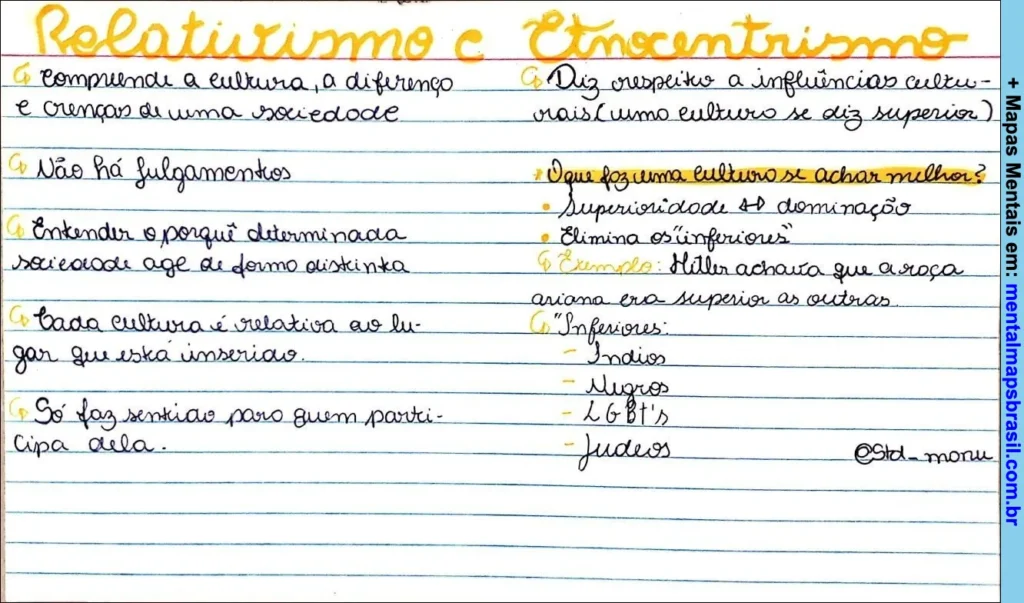 Relativismo e Etnocentrismo
compreende a cultura, a diferença
e crenças de uma sociedade
Não há julgamentos
Entender o porquê determinada
sociedade age de forma distinta
Cada cultura é relativa ao lu-
gar que está inserido.
Só faz sentido para quem parti-
cipa dela.
Diz respeito a influências cultu-
rais (uma cultura se diz superior)
* O que faz uma cultura se achar melhor?
• Superioridade ↔ dominação
• Elimina os "inferiores"
Exemplo: Hitler achava que a raça
ariana era superior as outras.
"Inferiores:
- Índios
- Negros
- LGBT's
- Judeus
@Std_manu
+ Mapas Mentais em: mentalmapsbrasil.com.br